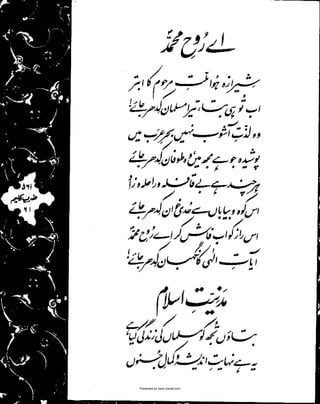 اے رُوحِ محمدؐ
شیرازہ ہُوا ملّتِ مرحوم کا ابتر
اب تُو ہی بتا، تیرا مسلمان کدھر جائے!
وہ لذّتِ آشوب نہیں بحرِ عرب میں
پوشیدہ جو ہے مجھ میں، وہ طوفان کدھر جائے
ہرچند ہے بے قافلہ و راحلہ و زاد
اس کوہ و بیاباں سے حُدی خوان کدھر جائے
اس راز کو اب فاش کر اے رُوحِ محمدؐ
آیاتِ الٰہی کا نگہبان کدھر جائے!
مَدنیّتِ اسلام
بتاؤں تُجھ کو مسلماں کی زندگی کیا ہے
یہ ہے نہایتِ اندیشہ و کمالِ جُنوں
۵۶۱
ضربِ کلیم
۶۱
Presented by www.ziaraat.com